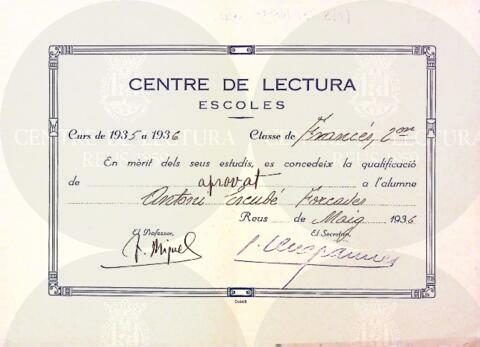 CENTRE DE LECTURA
ESCOLES
Curs de 1935 a 1936 Classe de Francés, 2on
En mèrit dels seus estudis, es concedeix la qualificació
de aprovat a l'alumne
Antoni Escubé Forcades
Reus de Maig 1936
El Professor, El Secretari,
P. Miquel